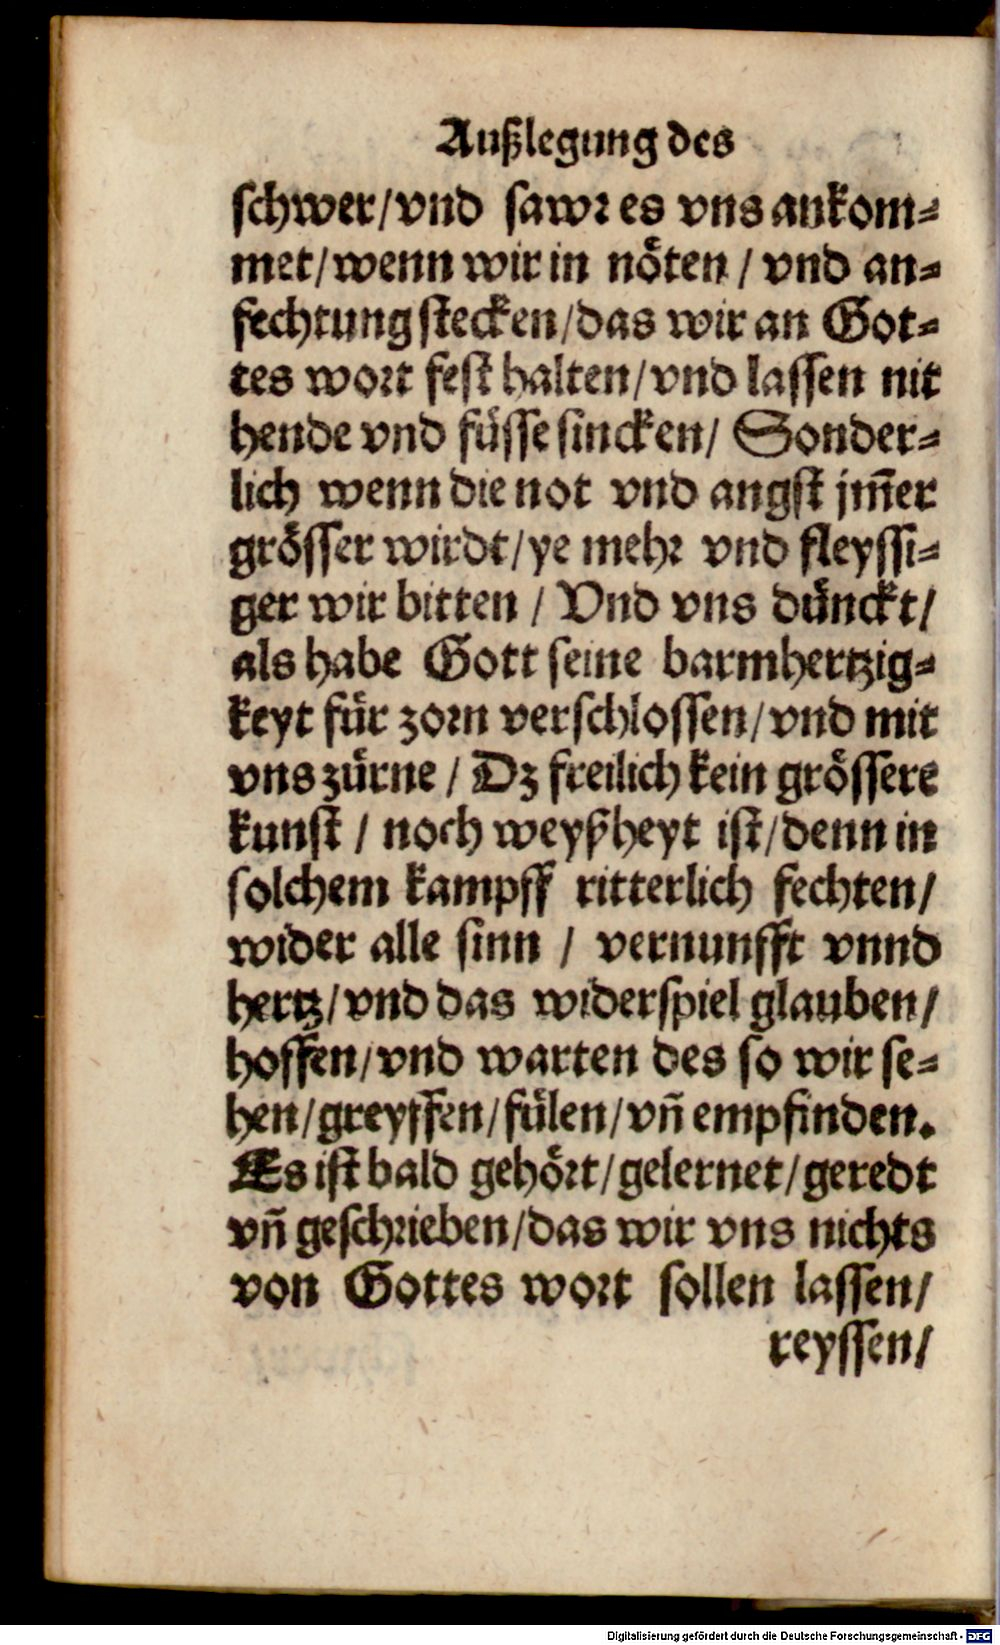 Außlegung des
schwer/vnd sawr es vns ankom⸗
met/wenn wir in nöten / vnd an⸗
fechtung stecken/das wir an Got⸗
tes wort fest halten/vnd lassen nit
hende vnd füsse sincken/ Sonder⸗
lich wenn die not vnd angst jm̃er
grösser wirdt/ye mehr vnd fleyssi⸗
ger wir bitten / Vnd vns dünckt/
als habe Gott seine barmhertzig⸗
keyt für zorn verschlossen/vnd mit
vns zürne / Dz freilich kein grössere
kunst / noch weyßheyt ist/denn in
solchem kampff ritterlich fechten/
wider alle sinn / vernunfft vnnd
hertz/vnd das widerspiel glauben/
hoffen/vnd warten des so wir se⸗
hen/greyffen/fülen/vñ empfinden.
Es ist bald gehört/gelernet/geredt
vñ geschrieben/das wir vns nichts
von Gottes wort sollen lassen/
reyssen/
Digitalisierung gefördert durch die Deutsche Forschungsgemeinschaft - DFG